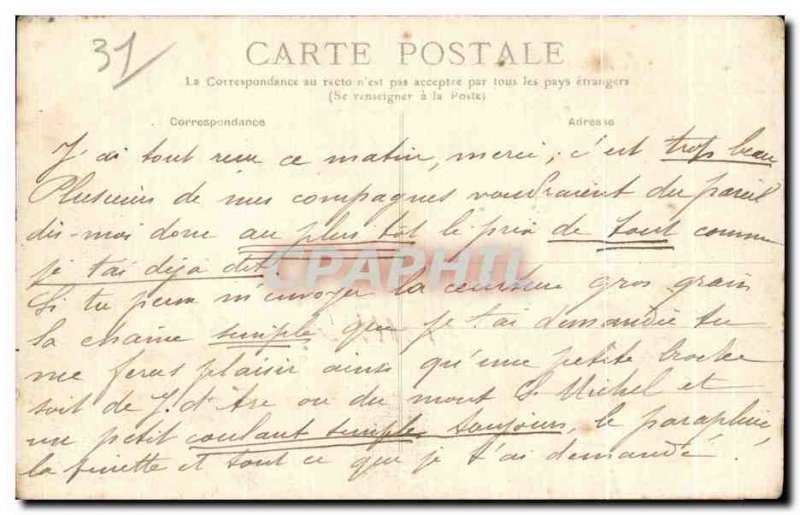 31
CARTE POSTALE
La Correspondance au recto n'est pas acceptée par tous les pays étrangers
(Se renseigner à la Poste)
Correspondance
Adresse
J'ai tout reçu ce matin, merci; c'est trop beau
Plusieurs de mes compagnes voudraient du pareil
dis-moi donc au plus tôt le prix de tout comme
je t'ai déjà dit
CPAPHIL
Si tu peux m'envoyer la ceinture gros grain
la chaîne simple que je t'ai demandée tu
me feras plaisir ainsi qu'une petite broche
soit de J. d'Arc ou du mont St Michel et
un petit coulant simple toujours, le parapluie,
la finette et tout ce que je t'ai demandé.